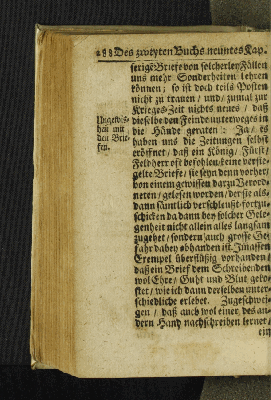 288 Des zweyten Buchs neuntes Cap.
serige Briefe von solcherley Fällen
uns mehr Sonderheiten lehren
können; so ist doch teils Posten
nicht zu trauen / und / zumal zur
Krieges-Zeit nichts neues / daß
dieselbe den Feinde unterweges in
die Hände geraten: Ja / es
haben uns die Zeitungen selbst
eröffnet / daß ein König / Fürst /
Feldherr oft befohlen / keine versie-
gelte Briefe / sie seyn denn vorher /
von einem gewissen darzu Verord-
neten / gelesen worden / der sie als-
dann sämtlich verschleust fortzu-
schicken da dann bey solcher Gele-
genheit nicht allein alles langsam
zugehet / sondern auch grosse Ge-
fahr dabey obhanden ist. Inmassen
Exempel überflüßig vorhanden /
daß ein Brief dem Schreibenden
wol Ehre / Guht und Blut geko-
stet / wie ich dann derselben unter-
schiedliche erlebet. Zugeschwei-
gen / daß auch wol einer des an-
dern Hand nachschreiben lernet /
ein
Ungewis-
heit mit
den Brie-
fen.